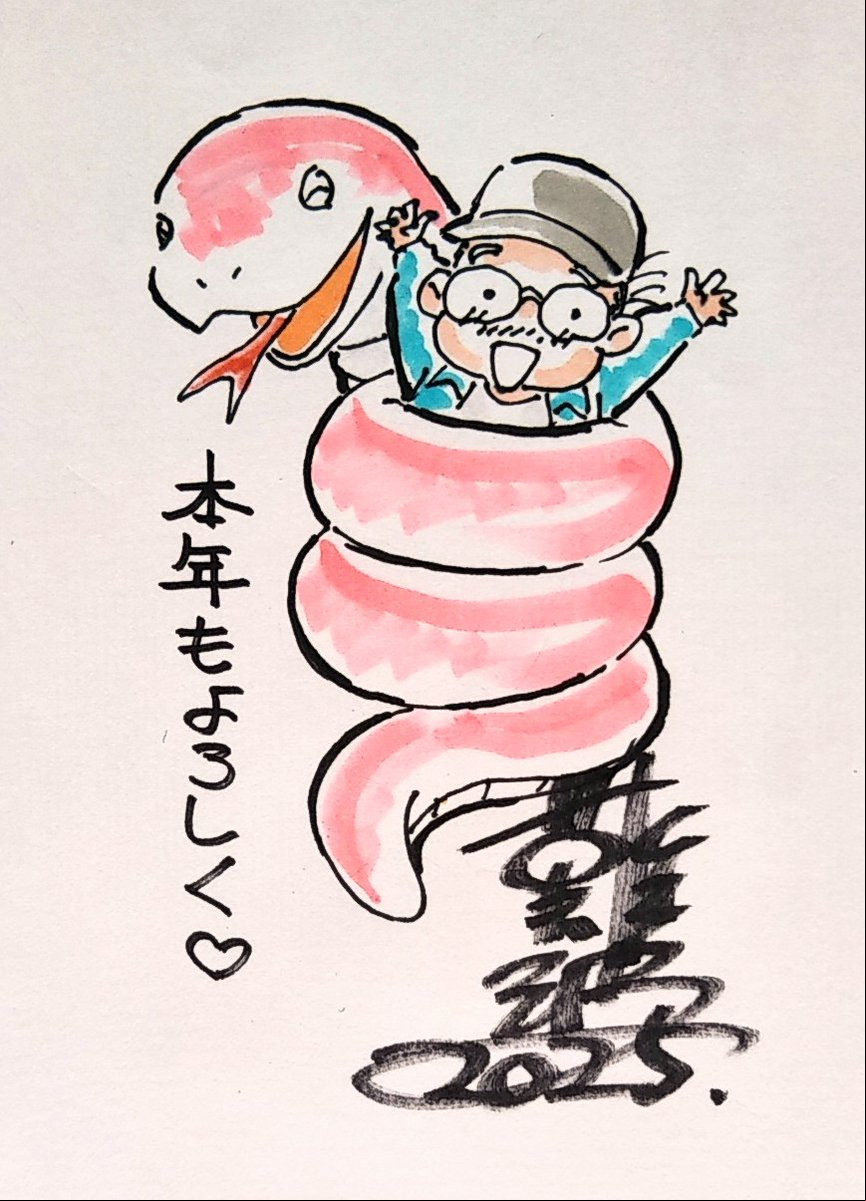 本年もよろしく♡
2025.